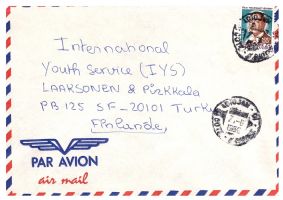 International
Youth Service (IYS)
LAARKSONEN & Pirkkala
PB 125 SF-20101 Turku
Finlande,
PAR AVION
air mail